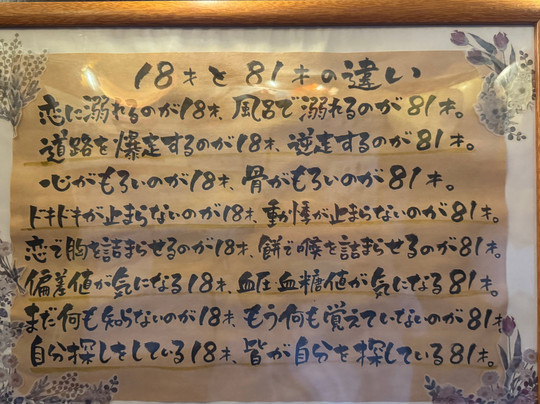 18才と81才の違い
恋に溺れるのが18才、風呂で溺れるのが81才。
道路を爆走するのが18才、逆走するのが81才。
心がもろいのが18才、骨がもろいのが81才。
ドキドキが止まらないのが18才、動悸が止まらないのが81才。
恋で胸を詰まらせるのが18才、餅で喉を詰まらせるのが81才。
偏差値が気になる18才、血圧血糖値が気になる81才。
まだ何も知らないのが18才、もう何も覚えていないのが81才
自分探しをしている18才、皆が自分を探している81才。